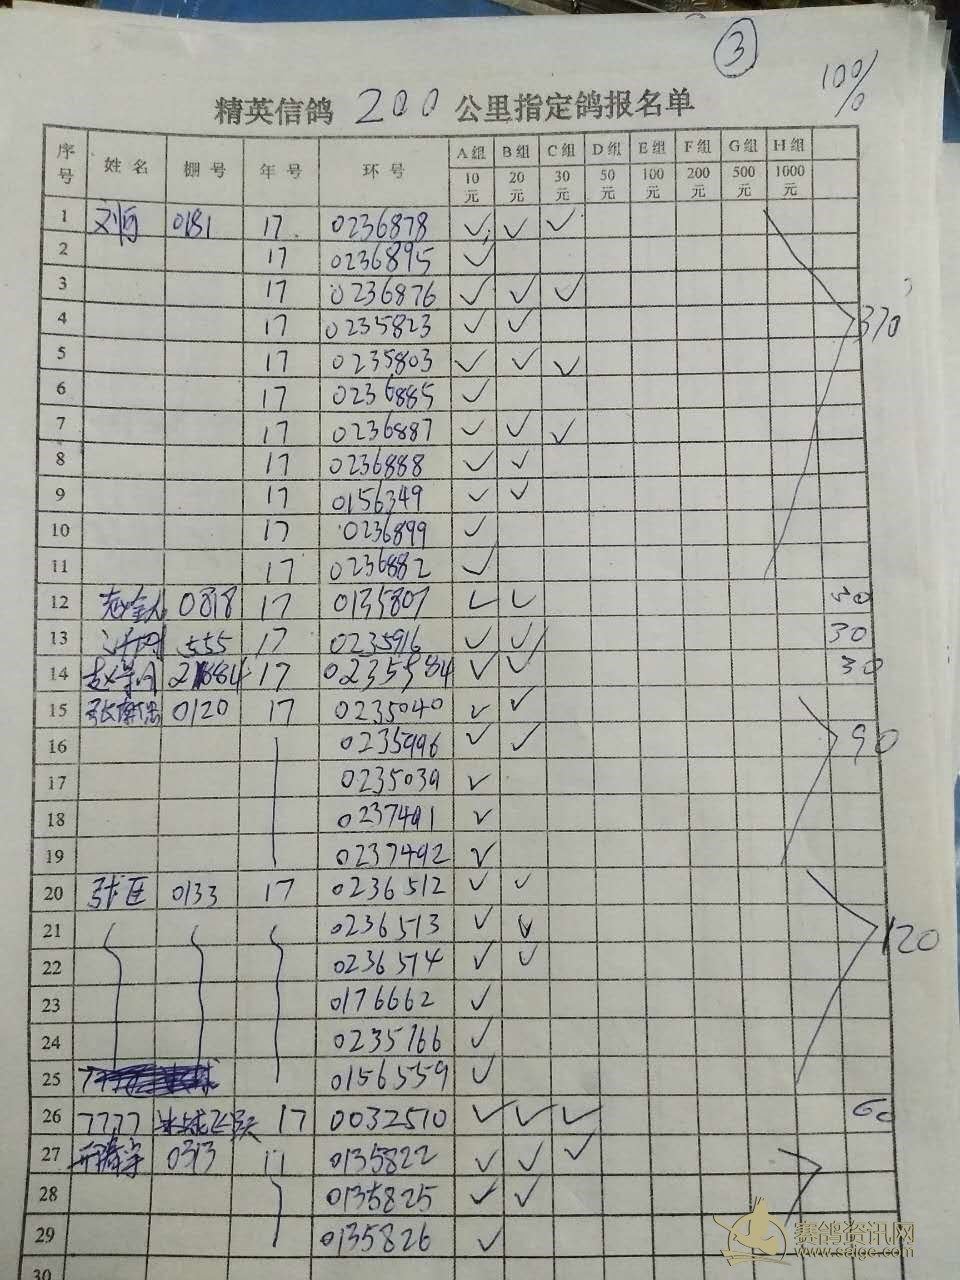 ③
100%
精英信鸽 200 公里指定鸽报名单
序号 姓名 棚号 年号 环号 A组 B组 C组 D组 E组 F组 G组 H组
10元 20元 30元 50元 100元 200元 500元 1000元
1 刘 0181 17 0236878 ✓ ✓ ✓
2 17 0236895 ✓
3 17 0236876 ✓ ✓ ✓
4 17 0235823 ✓ ✓ 370
5 17 0235803 ✓ ✓ ✓
6 17 0236885 ✓
7 17 0236887 ✓ ✓ ✓
8 17 0236888 ✓ ✓
9 17 0156349 ✓ ✓
10 17 0236899 ✓
11 17 0236882 ✓
12 0818 17 0135807 ✓ ✓
13 555 17 0235916 ✓ ✓ 30
14 赵 17 0235584 ✓ ✓ 30
15 张 0120 17 0235040 ✓ ✓
16 0235996 ✓ ✓ 90
17 0235039 ✓
18 0237491 ✓
19 0237492 ✓
20 张 0133 17 0236512 ✓ ✓
21 0236513 ✓ ✓ 120
22 0236514 ✓ ✓
23 0176662 ✓
24 0235766 ✓
25 0156559 ✓
26 7777 17 0032510 ✓ ✓ ✓ 60
27 0313 17 0135822 ✓ ✓ ✓
28 0135825 ✓ ✓
29 0135826 ✓
30
赛鸽资讯网
www.saige.com